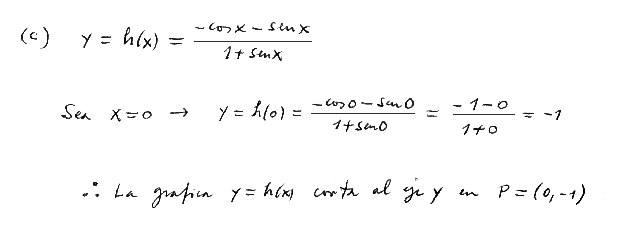 (c) y = h(x) = (-cosx - senx)/(1 + senx)
Sea x=0 → y = h(0) = (-cos0 - sen0)/(1+sen0) = (-1-0)/(1+0) = -1
∴ La grafica y = h(x) corta al eje y en P = (0,-1)